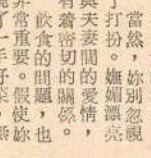 當然，妳別忽視
了打扮。嫵媚漂亮
與夫妻間的愛情，
有着密切的關係。
飲食的問題，也
非常重要。假使妳
了一手好菜，